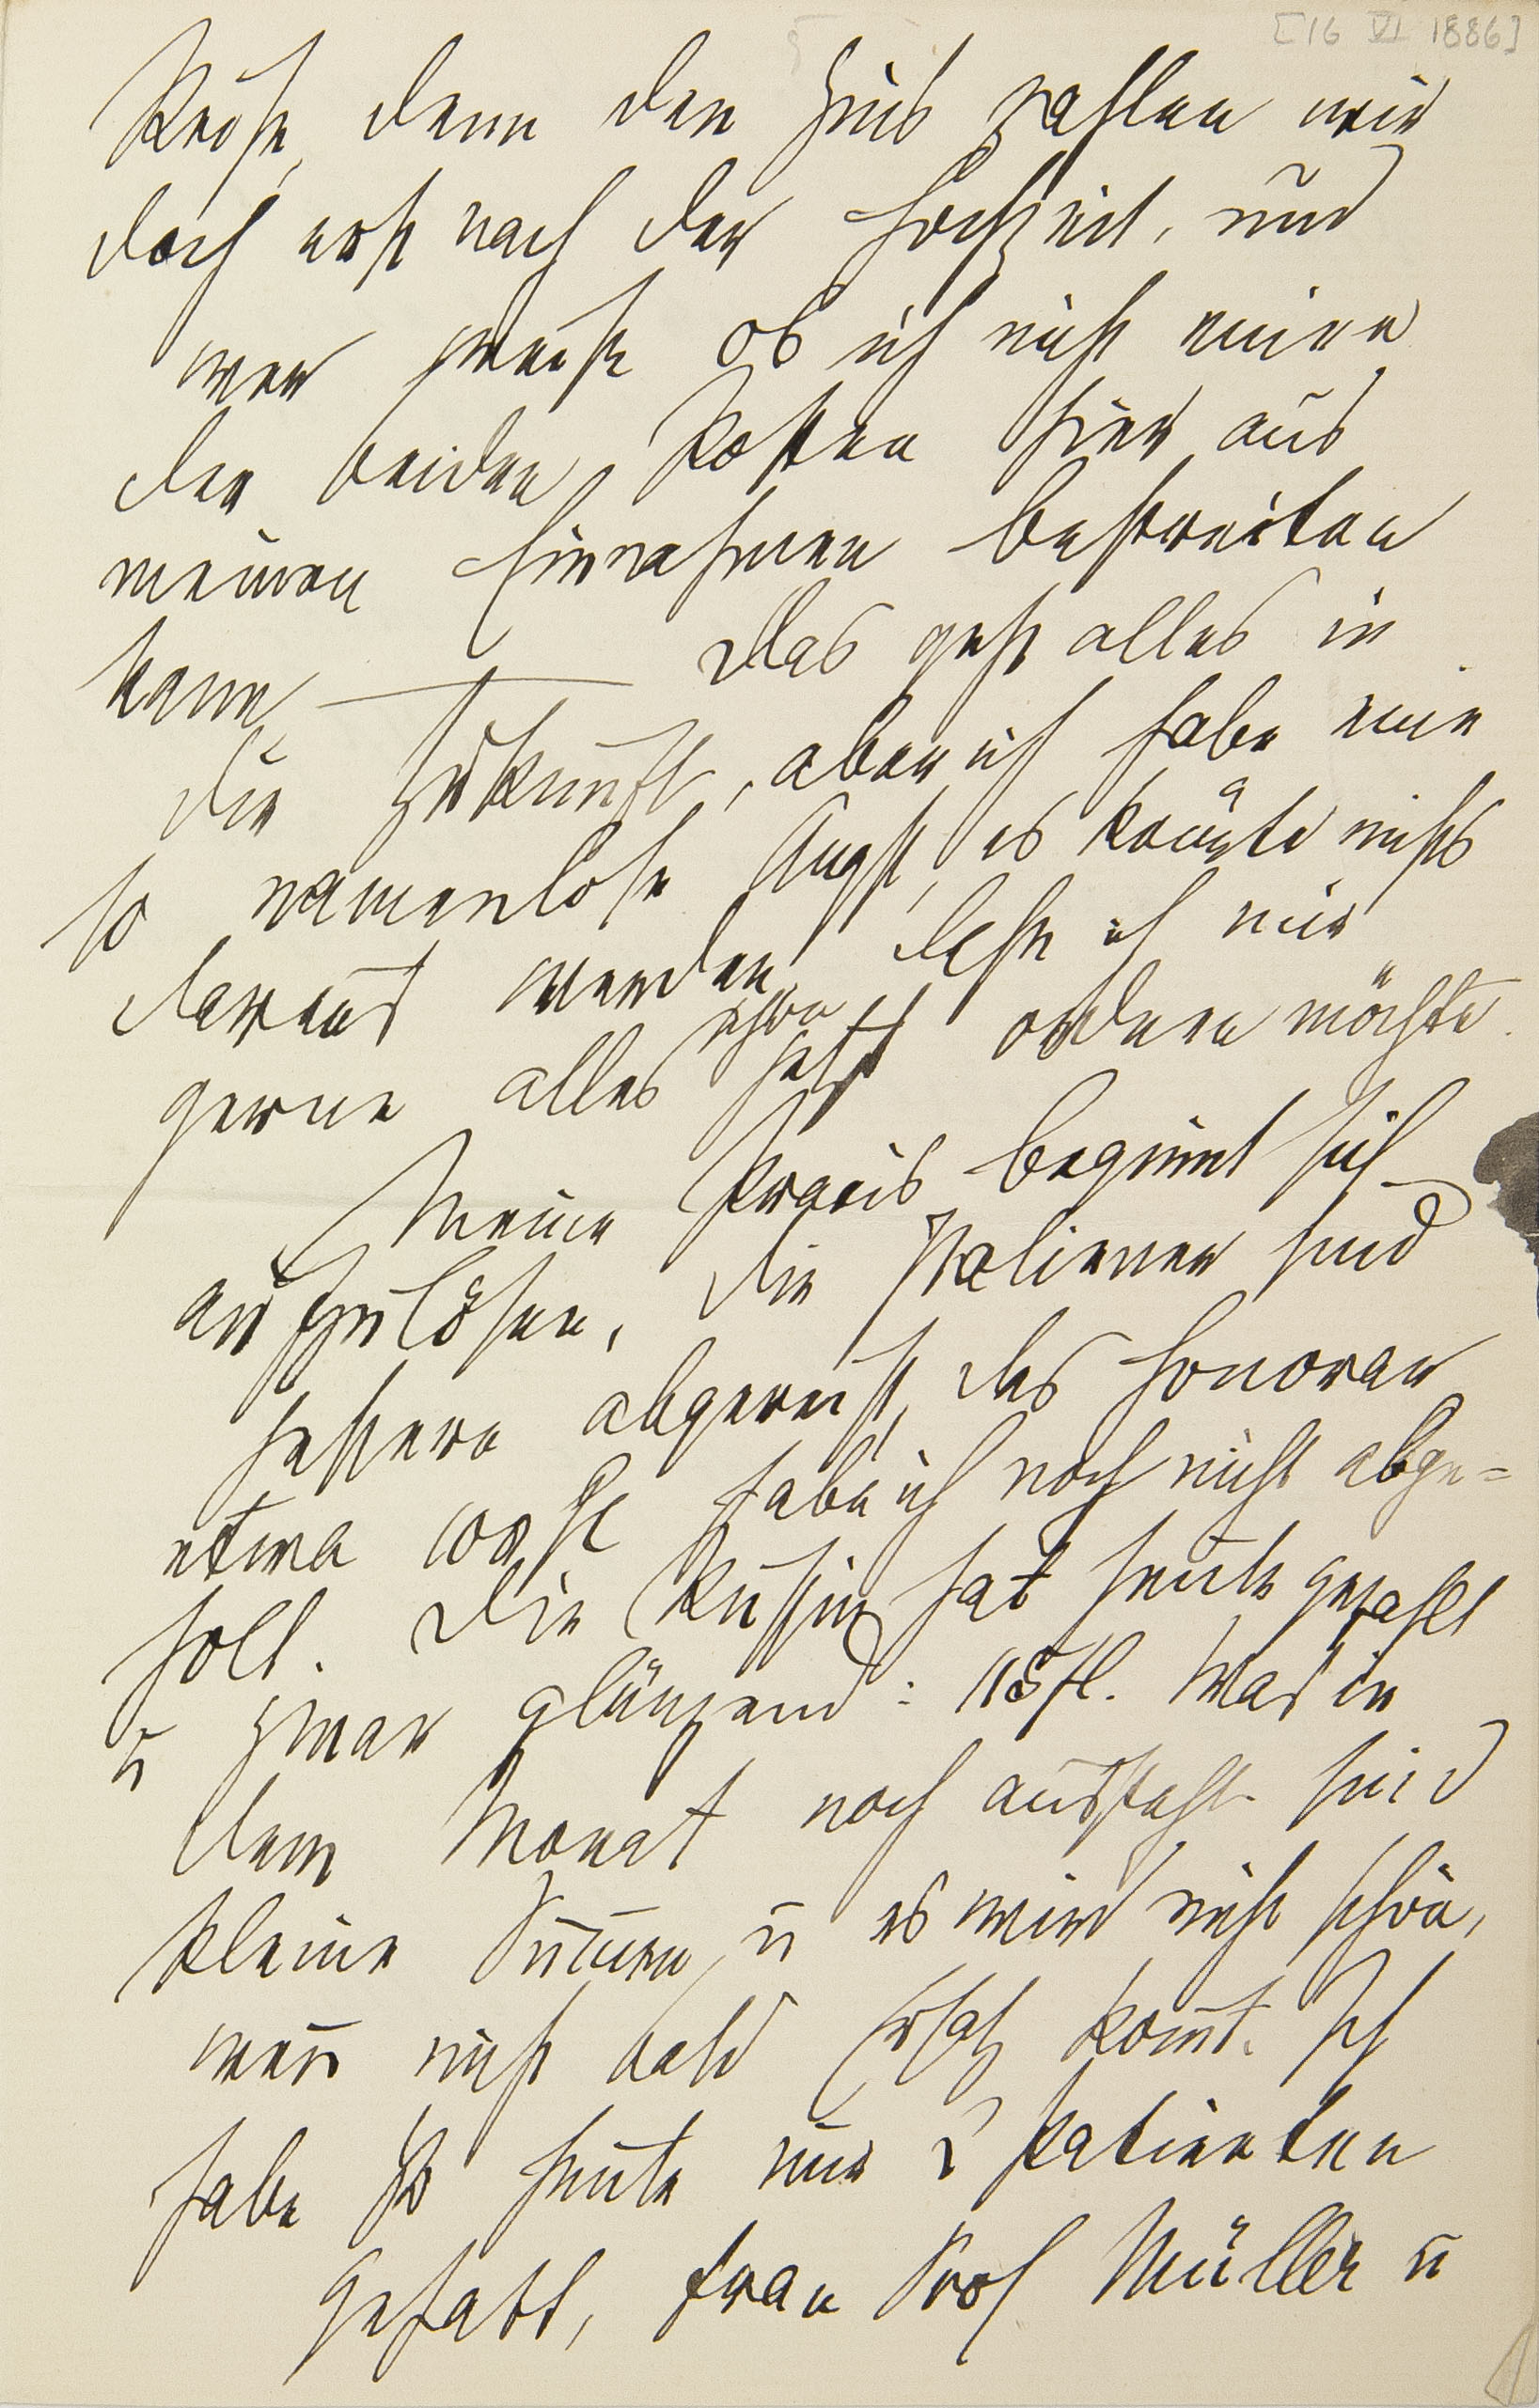 [16 VI 1886]
Reise, denn den Zins zahlen wir
doch erst nach der Hochzeit, und
wer weiß ob ich nicht einen
der beiden Posten hier aus
meinen Einnahmen bestreiten
kann. — Das geht alles in
die Zukunft, aber ich habe eine
so namenlose Angst, es könnte nichts
daraus werden, daß ich mir
gerne alles schon jetzt ordnen möchte.
Meine Praxis beginnt sich
aufzulösen, die Italiener sind
gestern abgereist, das Honorar
etwa 100 fl habe ich noch nicht abge=
holt. Die Russin hat heute gezahlt
u zwar glänzend: 115 fl. Was in
dem Monat noch aussteht sind
kleine Summen, u es wird nicht schön,
wenn nicht bald Ersatz kommt. Ich
habe heute nur 2 Patienten
gehabt, Frau Prof Müller u